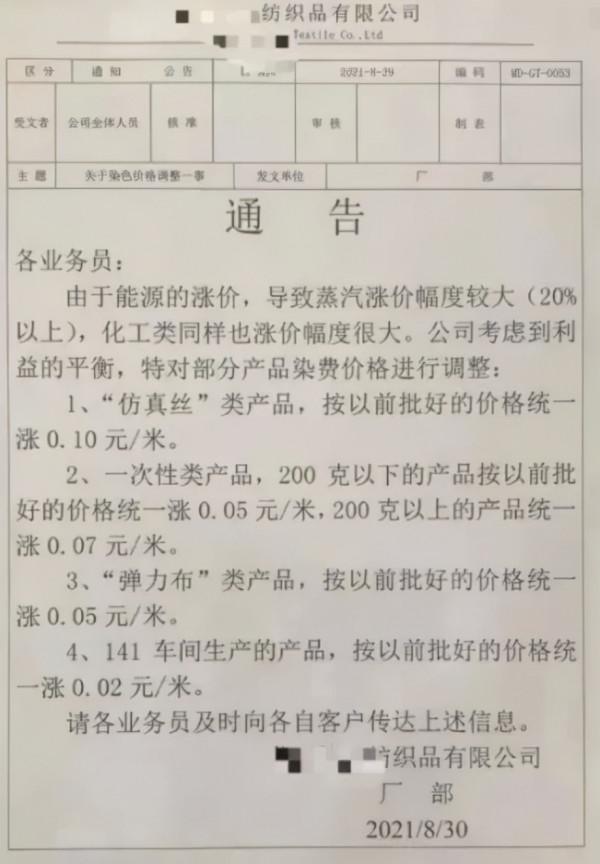 纺织品有限公司
Textile Co.,Ltd
区分 通知 公告 2021-8-29 编码 MD-GT-0053
受文者 公司全体人员 核准 审核 制表
主题 关于染色价格调整一事 发文单位 厂部
通 告
各业务员：
由于能源的涨价，导致蒸汽涨价幅度较大（20%
以上），化工类同样也涨价幅度很大。公司考虑到利
益的平衡，特对部分产品染费价格进行调整：
1、“仿真丝”类产品，按以前批好的价格统一
涨 0.10 元/米。
2、一次性类产品，200 克以下的产品按以前批
好的价格统一涨 0.05 元/米，200 克以上的产品统一
涨 0.07 元/米。
3、“弹力布”类产品，按以前批好的价格统一
涨 0.05 元/米。
4、141 车间生产的产品，按以前批好的价格统
一涨 0.02 元/米。
请各业务员及时向各自客户传达上述信息。
纺织品有限公司
厂 部
2021/8/30